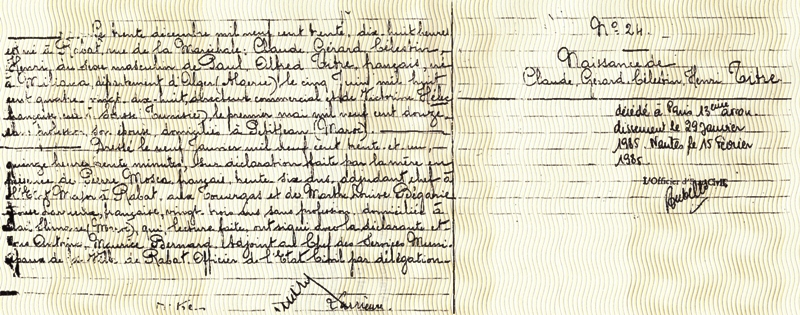 Le trente décembre mil neuf cent trente, dix huit heures
est né à Rabat, rue de la Maréchale: Claude, Gérard, Célestin,
Henri, du sexe masculin de Paul Alfred Tatre, français, né
à Miliana, département d'Alger (Algérie), le cinq Juin mil huit
cent quatre vingt dix huit, directeur commercial et de Victorine
française, née à Sousse (Tunisie), le premier mai mil neuf cent douze,
son épouse, domiciliés à Petitjean (Maroc).
Dressé le neuf Janvier mil neuf cent trente et un,
quinze heures vingt minutes, sur déclaration faite par la mère en
présence de Pierre Mosca, français, trente six ans, adjudant chef à
Major à Rabat, aux Touargas et de Marthe Louise
française, vingt trois ans sans profession, domiciliés à
(Maroc), qui, lecture faite, ont signé avec la déclarante et
Maurice Bernard, Adjoint au Chef des Services Muni-
cipaux de la Ville de Rabat, Officier de l'Etat Civil par délégation.
No. 24.
Naissance de
Claude, Gérard, Célestin, Henri
décédé à Paris 13eme arron-
dissement le 29 Janvier
1985. Nantes le 15 Février
1985
L'Officier d'Etat Civil,